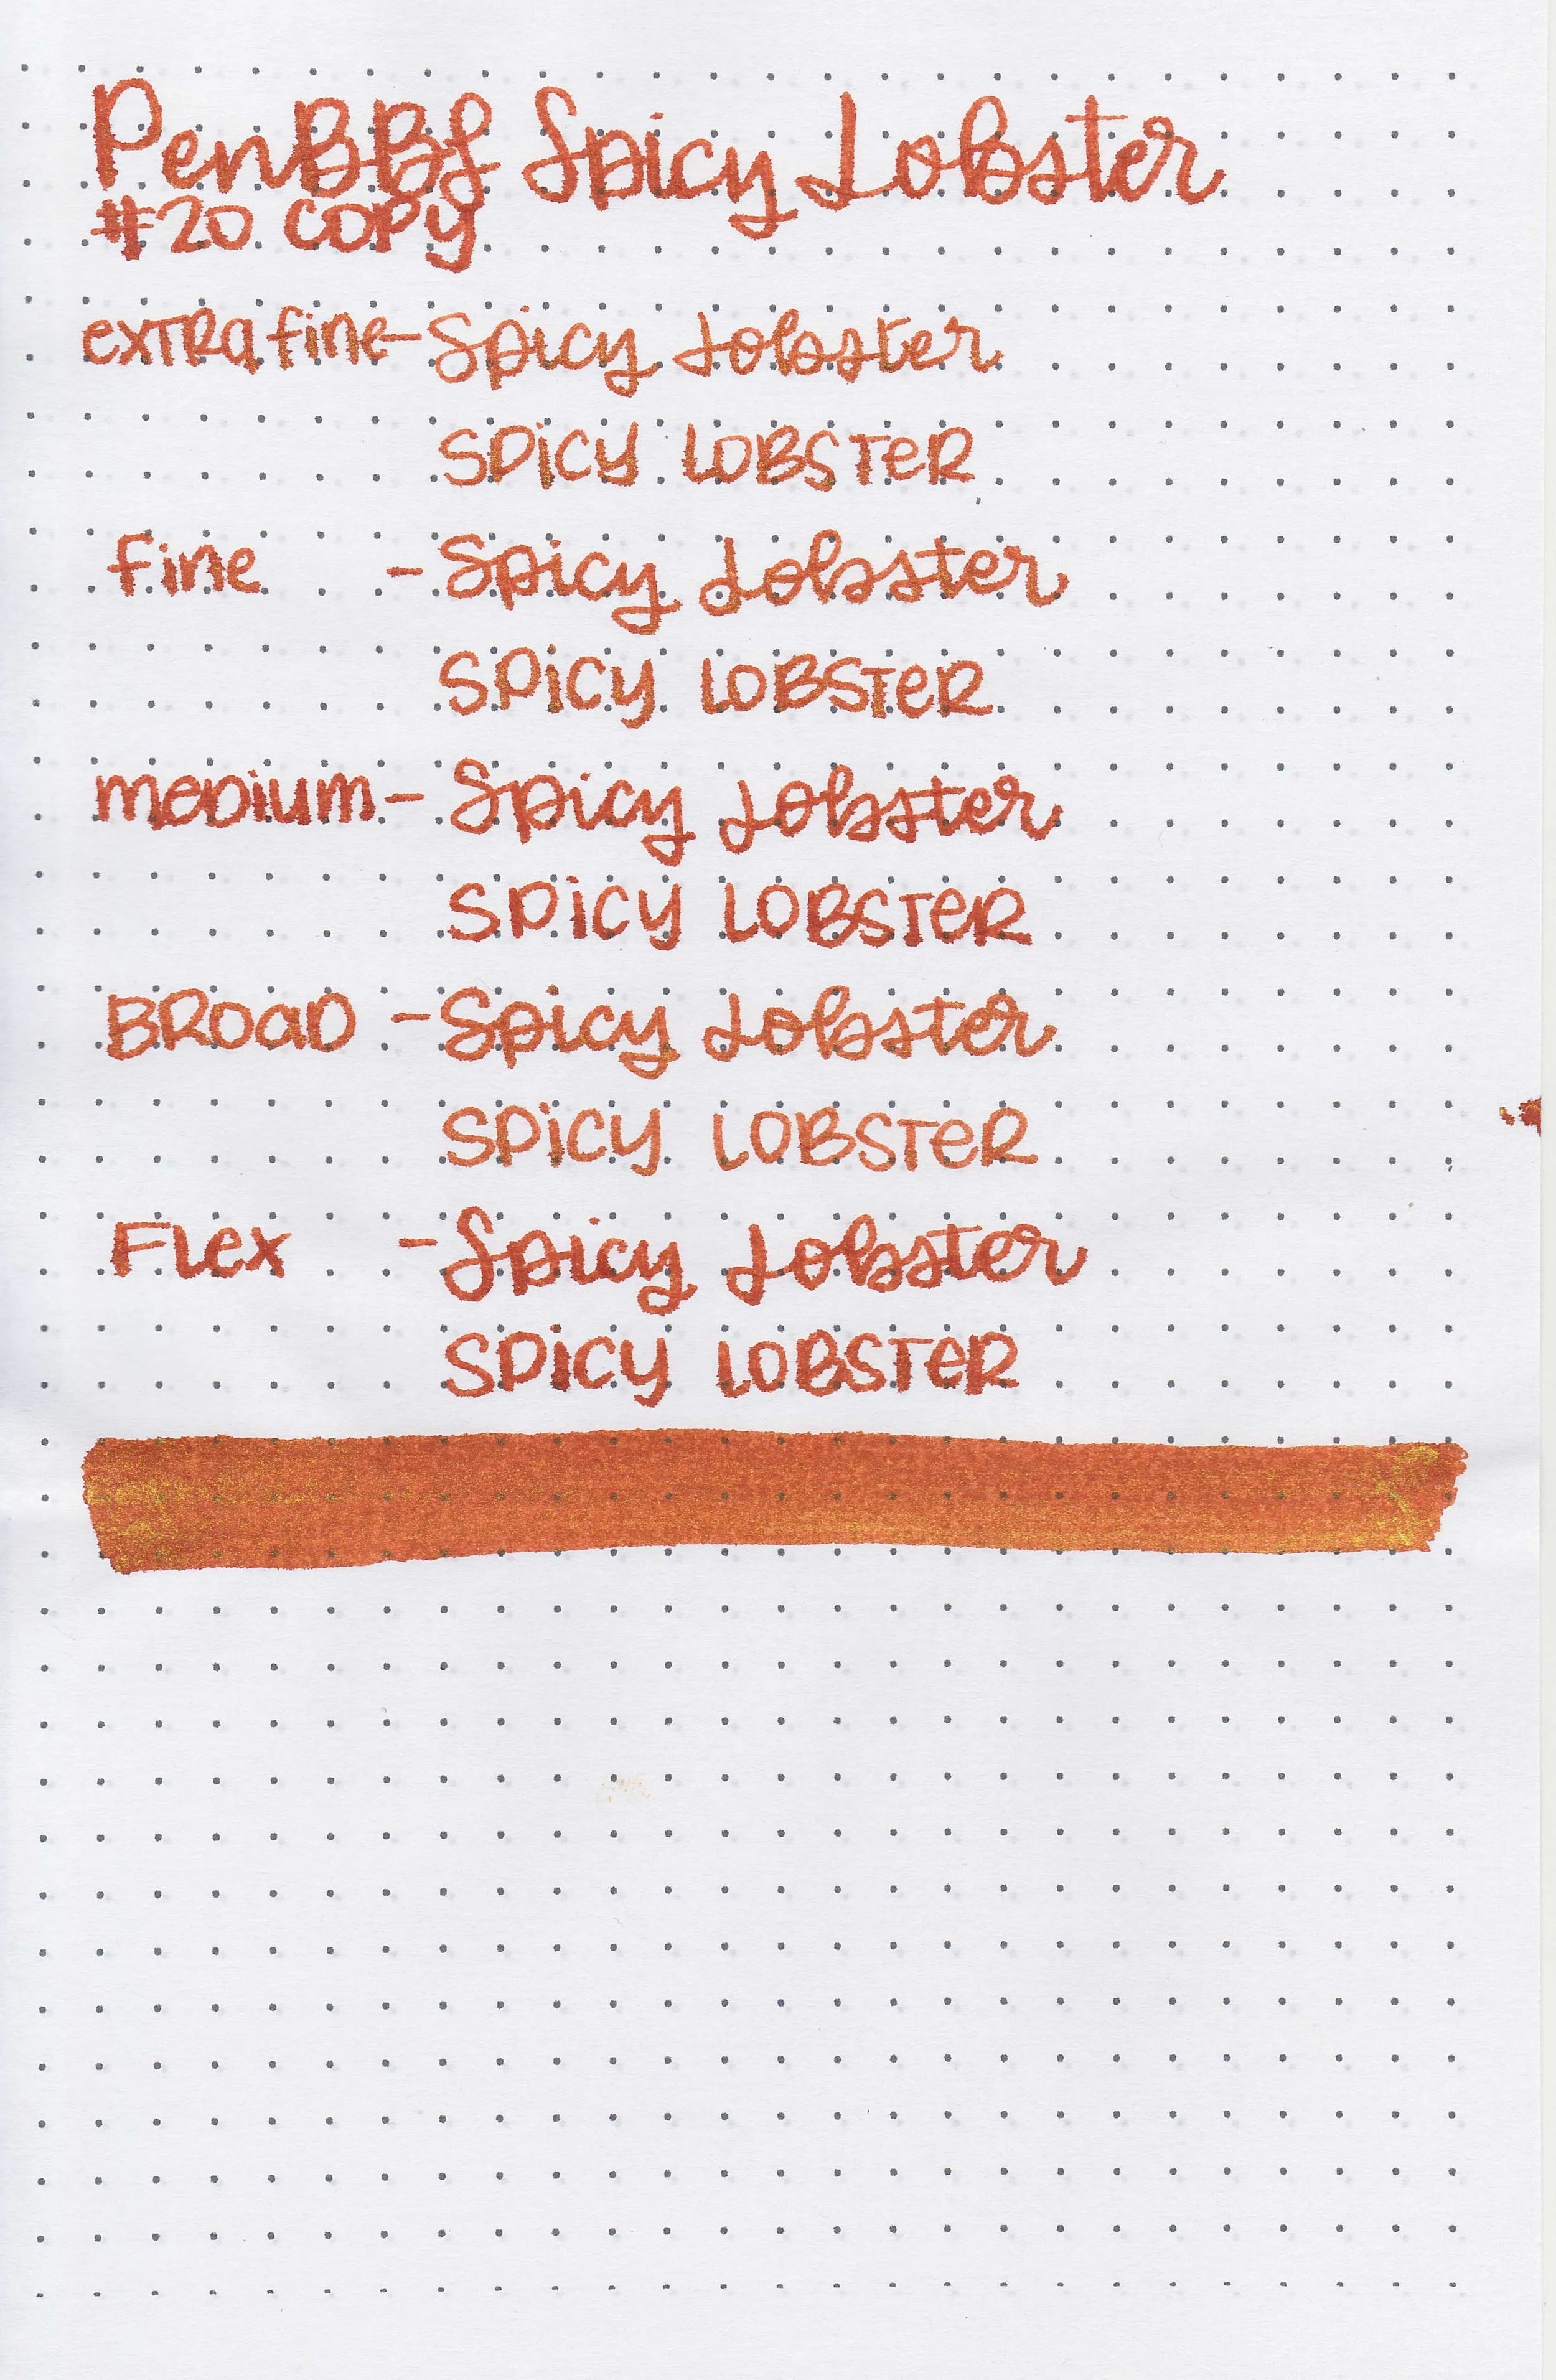 PenBBS Spicy Lobster
#20 COPY
extra fine - Spicy Lobster
SPiCY LOBSTeR
fine - Spicy Lobster
SPiCY LOBSTeR
meDium - Spicy Lobster
SPiCY LOBSTeR
BROaD - Spicy Lobster
SPiCY LOBSTeR
FLex - Spicy Lobster
SPiCY LOBSTeR